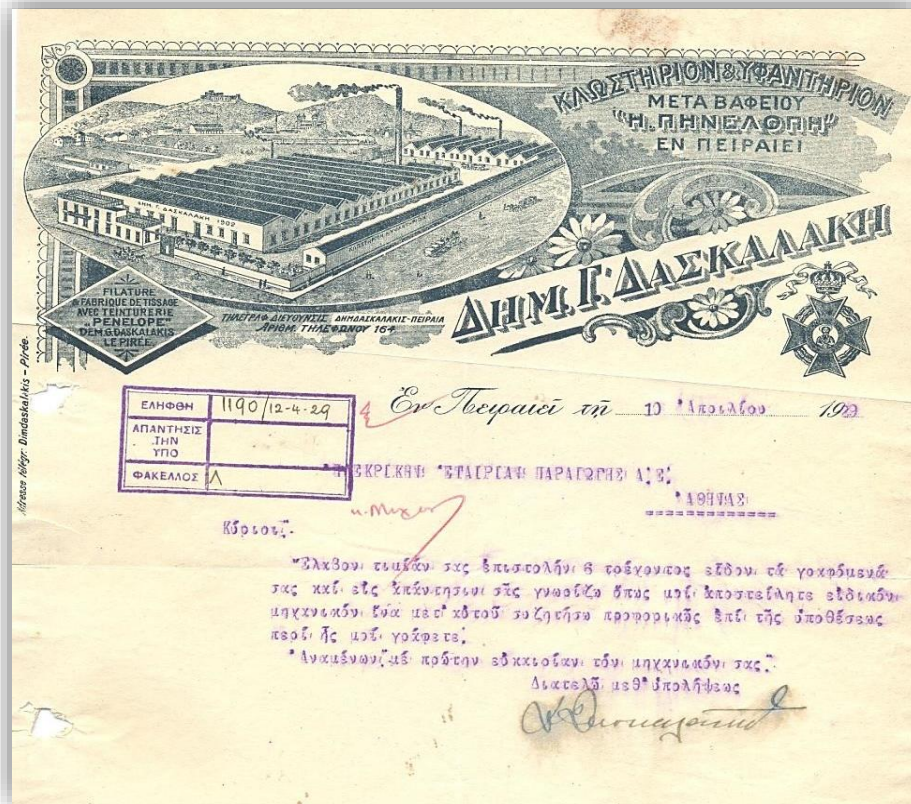 ΚΛΩΣΤΗΡΙΟΝ & ΥΦΑΝΤΗΡΙΟΝ
ΜΕΤΑ ΒΑΦΕΙΟΥ
"Η. ΠΗΝΕΛΟΠΗ"
ΕΝ ΠΕΙΡΑΙΕΙ
ΔΗΜ. Γ. ΔΑΣΚΑΛΑΚΗ 1902
ΔΗΜ. Γ. ΔΑΣΚΑΛΑΚΗ
FILATURE
& FABRIQUE DE TISSAGE
AVEC TEINTURERIE
„PENELOPE"
DEM.G.DASKALAKIS
LE PIRÉE
ΤΗΛΕΓΡΑΦ. ΔΙΕΥΘΥΝΣΙΣ ΔΗΜΔΑΣΚΑΛΑΚΙΣ-ΠΕΙΡΑΙΑ
ΑΡΙΘΜ. ΤΗΛΕΦΩΝΟΥ 164
Adresse télégr: Dimdaskalakis - Pirée.
ΕΛΗΦΘΗ 1190/12-4-29
ΑΠΑΝΤΗΣΙΣ
ΤΗΝ
ΥΠΟ
ΦΑΚΕΛΛΟΣ Λ
Ἐν Πειραιεῖ τῇ 10 Ἀπριλίου 1929
ΕΤΑΙΡΙΑΝ ΠΑΡΑΓΩΓΗΣ Α.Ε.
ΑΘΗΝΑΣ
Κύριοι,
Ἔλαβον τιμίαν σας ἐπιστολήν 6 τρέχοντος εἶδον τά γραφόμενά
σας καί εἰς ἀπάντησιν σᾶς γνωρίζω ὅπως μοί ἀποστείλητε εἰδικόν
μηχανικόν ἵνα μετ' αὐτοῦ συζητήσω προφορικῶς ἐπί τῆς ὑποθέσεως
περί ἧς μοί γράφετε.
Ἀναμένων, μέ πρώτην εὐκαιρίαν τόν μηχανικόν σας.
Διατελῶ μεθ' ὑπολήψεως